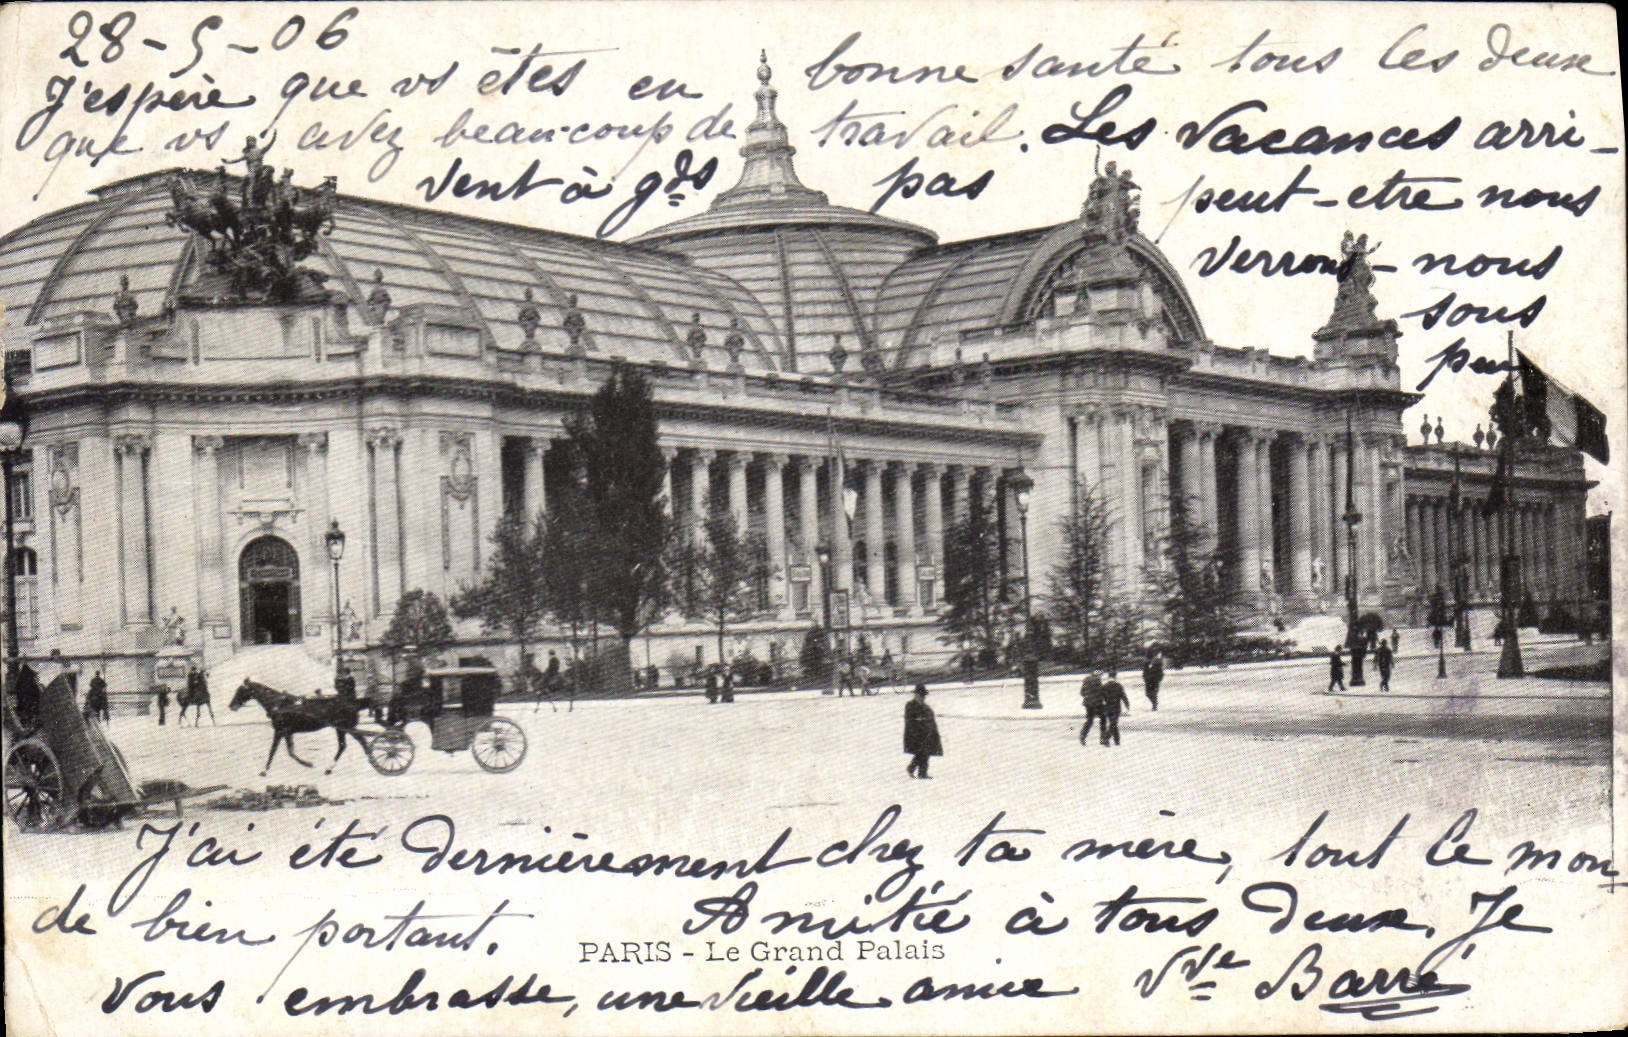 28-5-06
J'espère que vs êtes en bonne santé tous les deux
que vs avez beaucoup de travail. Les Vacances arri-
vent à gds pas peut-etre nous
verrons-nous
sous
peu
J'ai été dernièrement chez ta mère, tout le mon-
de bien portant. Amitié à tous deux. Je
PARIS - Le Grand Palais
vous embrasse, une vieille amie Vve Barré